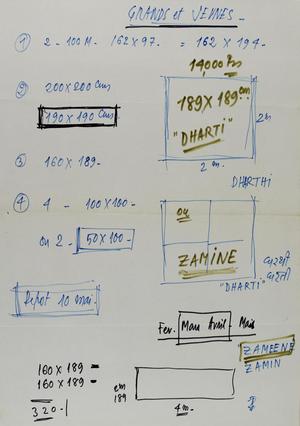 GRANDS et JEUNES -
① 2 - 100 M - 162 x 97. = 162 x 194 -
14,000 Frs
② 200 x 200 cms
190 x 190 cms
189 x 189 cm
"DHARTI"
2 m
2 m.
③ 160 x 189 -
DHARTHI
④ 4 - 100 x 100 -
ou 2 - 50 x 100 -
ou
ZAMINE
"DHARTI"
Depot 10 mai.
Fev. Mars Avril - Mai
ZAMEENE
ZAMIN
160 x 189 =
160 x 189 =
320 -
cm
189
4 m